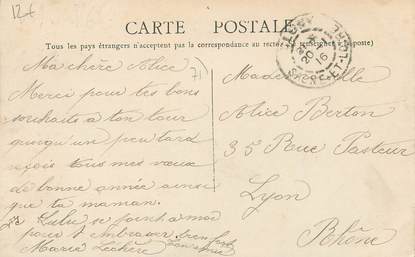 12f
CARTE POSTALE
Tous les pays étrangers n'acceptent pas la correspondance au recto (se renseigner à la poste)
71
Ma chère Alice
Merci pour tes bons
souhaits à ton tour
quoiqu'un peu tard
reçois tous mes vœux
de bonne année ainsi
que ta maman.
Lulu se joint a moi
pour t embrasser bien fort
Marie
Mademoiselle
Alice Berton
35 Rue Pasteur
Lyon
Rhône
20
16
SAÔNE-ET-LOIRE